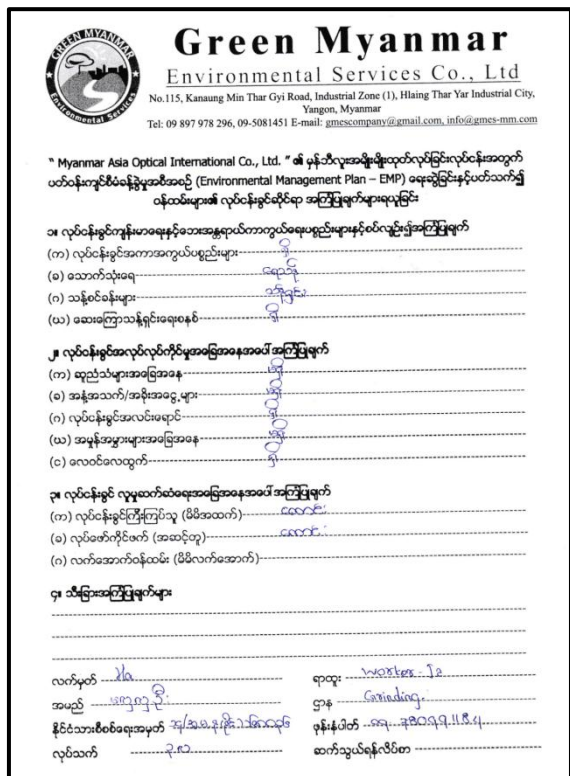 GREEN MYANMAR
Environmental Services
Green Myanmar
Environmental Services Co., Ltd
No.115, Kanaung Min Thar Gyi Road, Industrial Zone (1), Hlaing Thar Yar Industrial City,
Yangon, Myanmar
Tel: 09 897 978 296, 09-5081451 E-mail: gmescompany@gmail.com, info@gmes-mm.com
" Myanmar Asia Optical International Co., Ltd. " ၏ မှန်ဘီလူးအမျိုးမျိုးထုတ်လုပ်ခြင်းလုပ်ငန်းအတွက်
ပတ်ဝန်းကျင်စီမံခန့်ခွဲမှုအစီအစဉ် (Environmental Management Plan – EMP) ရေးဆွဲခြင်းနှင့်ပတ်သက်၍
ဝန်ထမ်းများ၏ လုပ်ငန်းခွင်ဆိုင်ရာ အကြံပြုချက်များရယူခြင်း
၁။ လုပ်ငန်းခွင်ကျန်းမာရေးနှင့်ဘေးအန္တရာယ်ကာကွယ်ရေးပစ္စည်းများနှင့်စပ်လျဉ်း၍အကြံပြုချက်
(က) လုပ်ငန်းခွင်အကာအကွယ်ပစ္စည်းများ ရှိ
(ခ) သောက်သုံးရေ ရေသန့်
(ဂ) သန့်စင်ခန်းများ သန့်ရှင်း
(ဃ) ဆေးကြောသန့်ရှင်းရေးစနစ် ရှိ
၂။ လုပ်ငန်းခွင်အလုပ်လုပ်ကိုင်မှုအခြေအနေအပေါ် အကြံပြုချက်
(က) ဆူညံသံများအခြေအနေ
(ခ) အနံ့အသက်/အခိုးအငွေ့များ
(ဂ) လုပ်ငန်းခွင်အလင်းရောင် ရှိ
(ဃ) အမှုန်အမွှားများအခြေအနေ
(င) လေဝင်လေထွက် ရှိ
၃။ လုပ်ငန်းခွင် လူမှုဆက်ဆံရေးအခြေအနေအပေါ် အကြံပြုချက်
(က) လုပ်ငန်းခွင်ကြီးကြပ်သူ (မိမိအထက်) ကောင်း
(ခ) လုပ်ဖော်ကိုင်ဖက် (အဆင့်တူ) ကောင်း
(ဂ) လက်အောက်ဝန်ထမ်း (မိမိလက်အောက်)
၄။ သီးခြားအကြံပြုချက်များ
လက်မှတ် ရာထူး worker-
အမည် ဌာန Grinding.
နိုင်ငံသားစိစစ်ရေးအမှတ် ဖုန်းနံပါတ်
လုပ်သက် ဆက်သွယ်ရန်လိပ်စာ